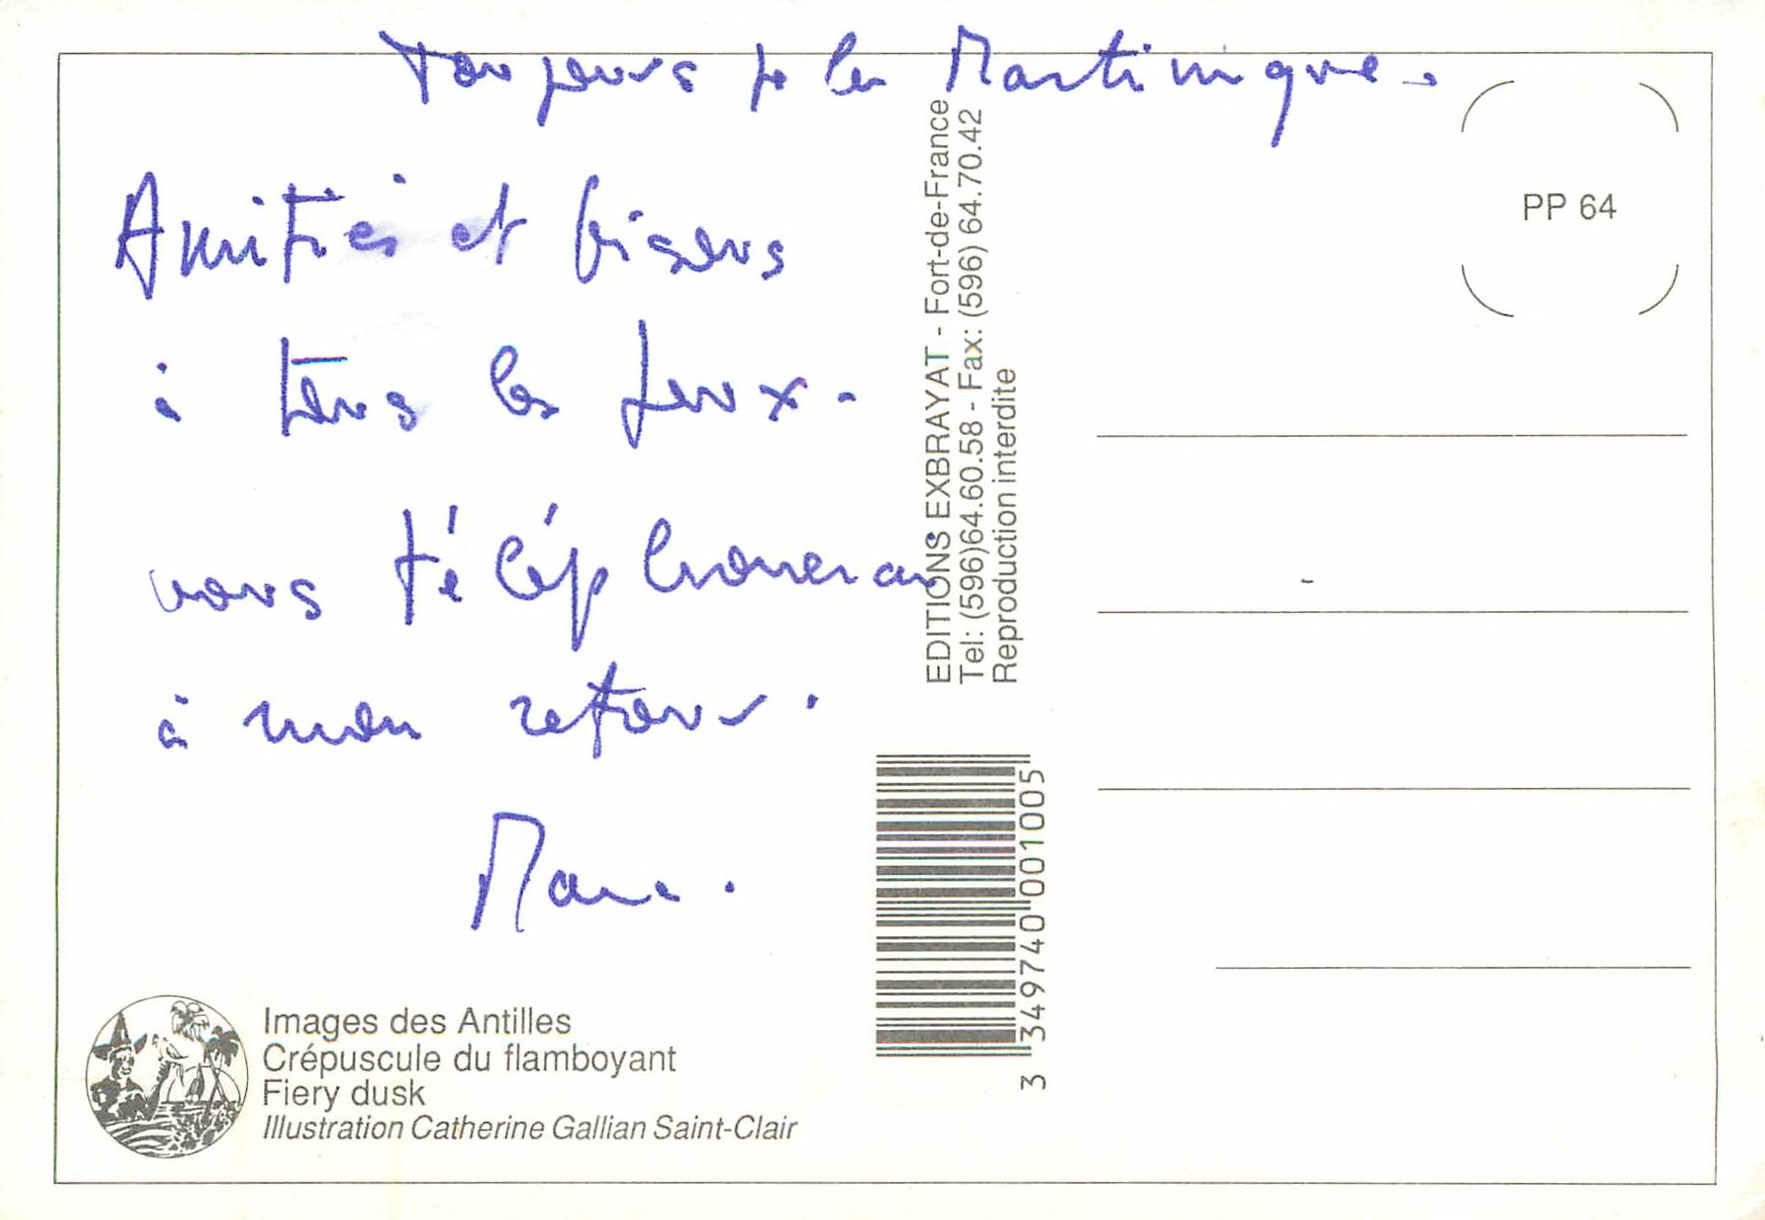 Toujours pr la Martinique.
Amitiés et bisous
à tous les
vous téléphonerai
à mon retour.
Marc.
EDITIONS EXBRAYAT - Fort-de-France
Tel: (596)64.60.58 - Fax: (596) 64.70.42
Reproduction interdite
PP 64
3 349740 001005
Images des Antilles
Crépuscule du flamboyant
Fiery dusk
Illustration Catherine Gallian Saint-Clair